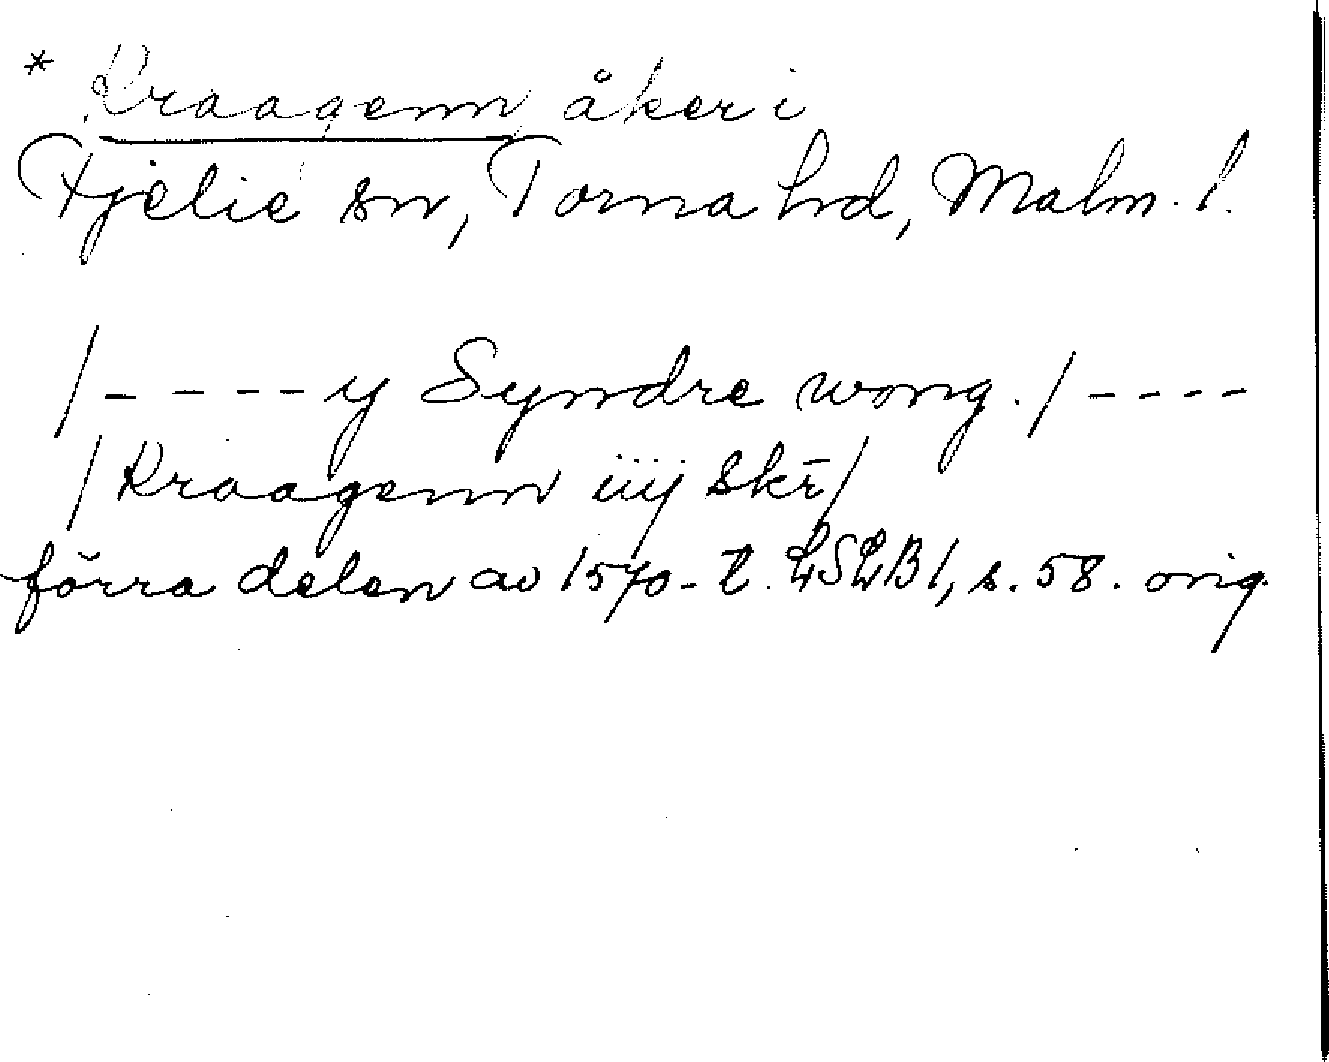 * Kraagenn åker i
Fjelie sn, Torna hd, Malm. l.
/----y Syndre wong./----
/Kraagenn iiij skr̄/
förra delen av 1570-t. LSLB1, s. 58. orig.